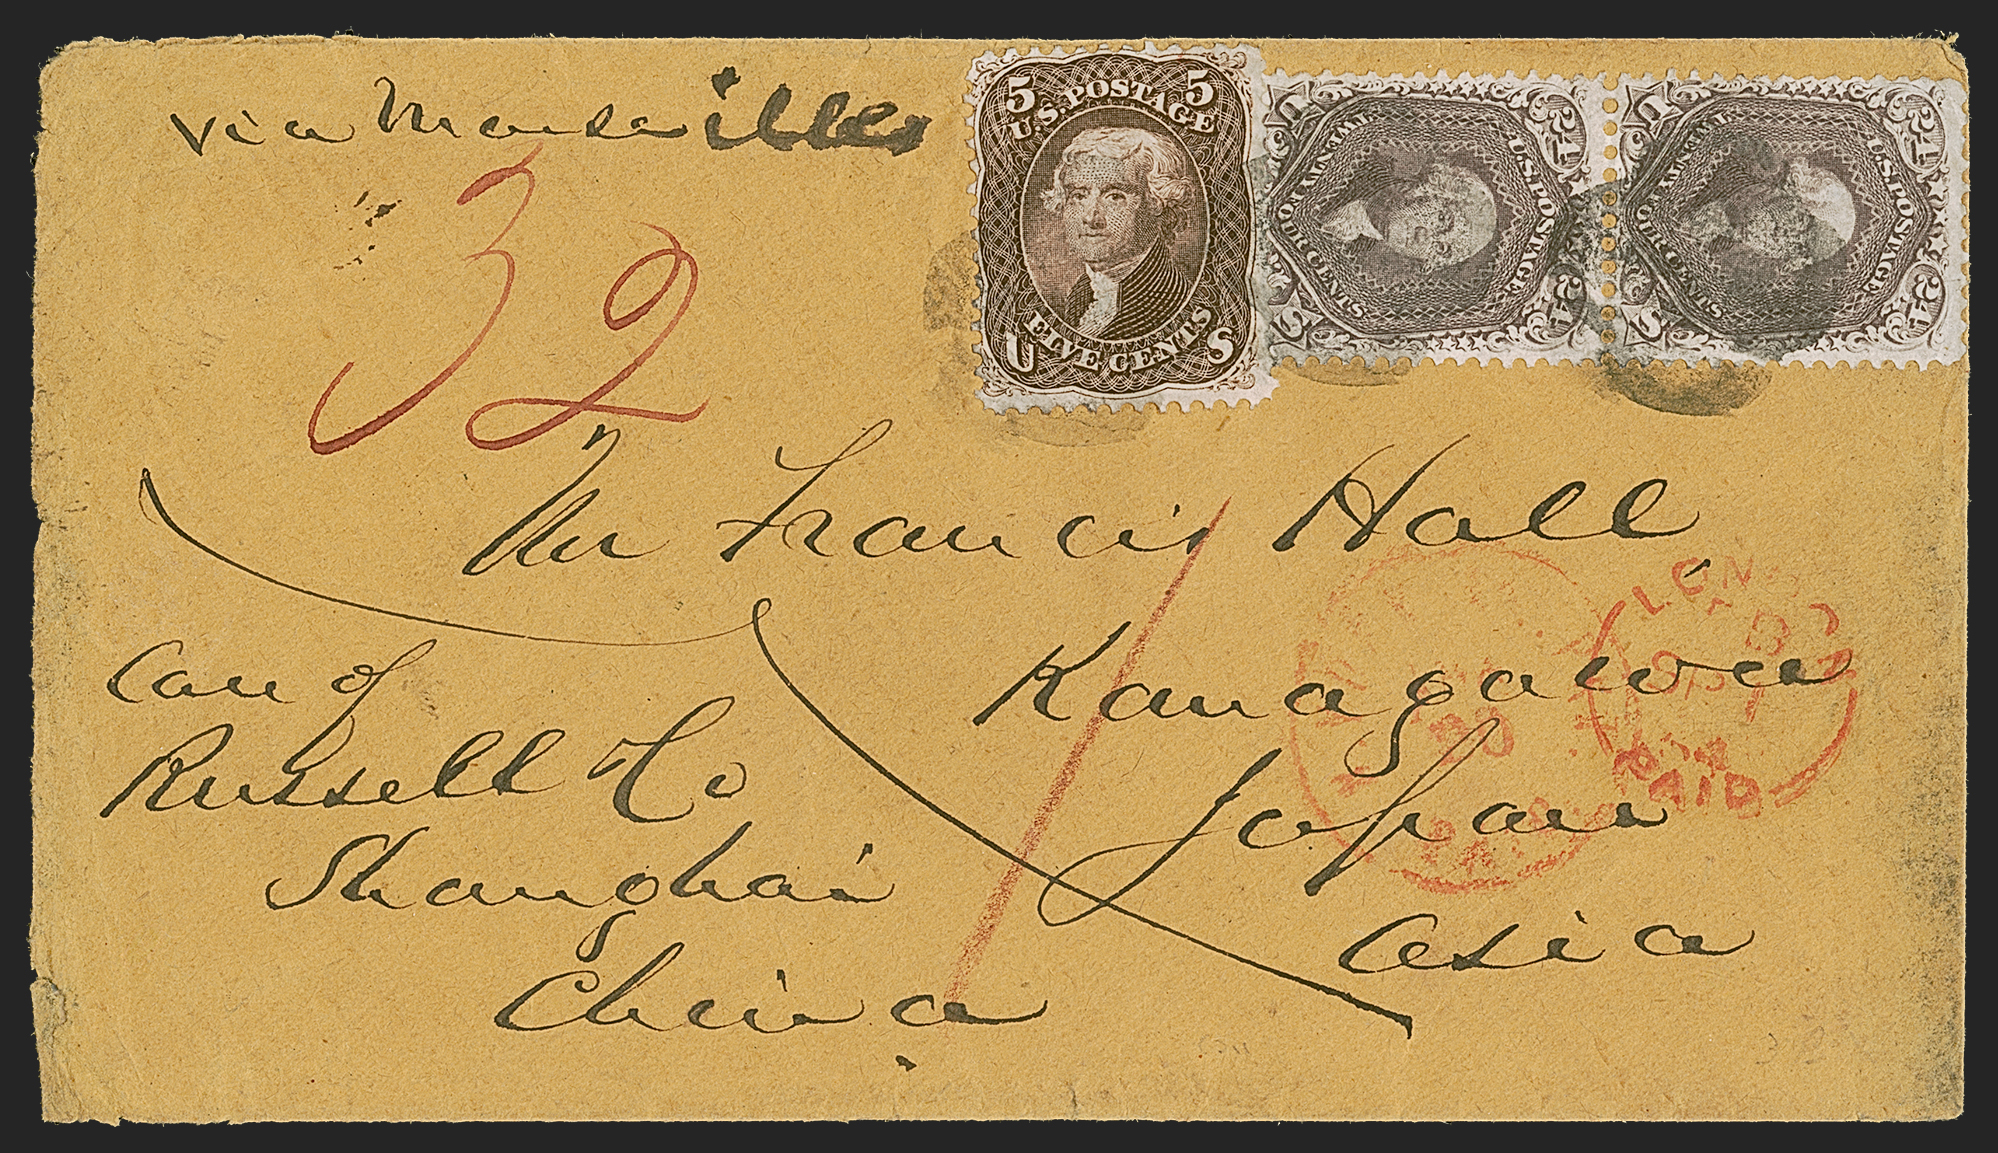 via Marseilles
32
5 5
U.S. POSTAGE
FIVE CENTS
U S
U
24
TWENTY FOUR CENTS
U.S. POSTAGE
24
S
U
24
TWENTY FOUR CENTS
U.S. POSTAGE
24
S
Mr Francis Hall
Kanagawa
Japan
Asia
Care of
Russell & Co
Shanghai
China
LON
PAID
20